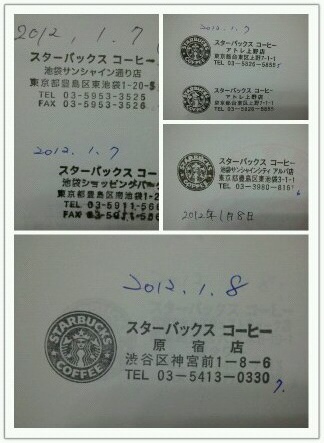 2012, 1, 7
スターバックス コーヒー
池袋サンシャイン通り店
東京都豊島区東池袋1-20-
TEL 03-5953-3525
FAX 03-5953-3526
2012. 1. 7
スターバックス コーヒー
池袋ショッピングパーク
東京都豊島区南池袋1-
TEL 03-5911-56
FAX 03-5911-56
2012. 1. 7
スターバックス コーヒー
アトレ上野店
東京都台東区上野7-1-1
TEL 03-5826-5855
スターバックス コーヒー
アトレ上野店
東京都台東区上野7-1-1
TEL 03-5826-5855
スターバックス コーヒー
サンシャインシティ アルパ店
東京都豊島区東池袋3-1-1
TEL 03-3980-816
2012年1月8日
2012. 1. 8
STARBUCKS
COFFEE
スターバックス コーヒー
原宿店
渋谷区神宮前1-8-6
TEL 03-5413-0330
7.